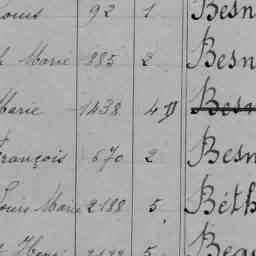 Louis 92 1 Besn
Marie 885 2 Besn
Marie 1438 4 Besn
François 670 2 Besn
Louis Marie 2188 5 Béth
5